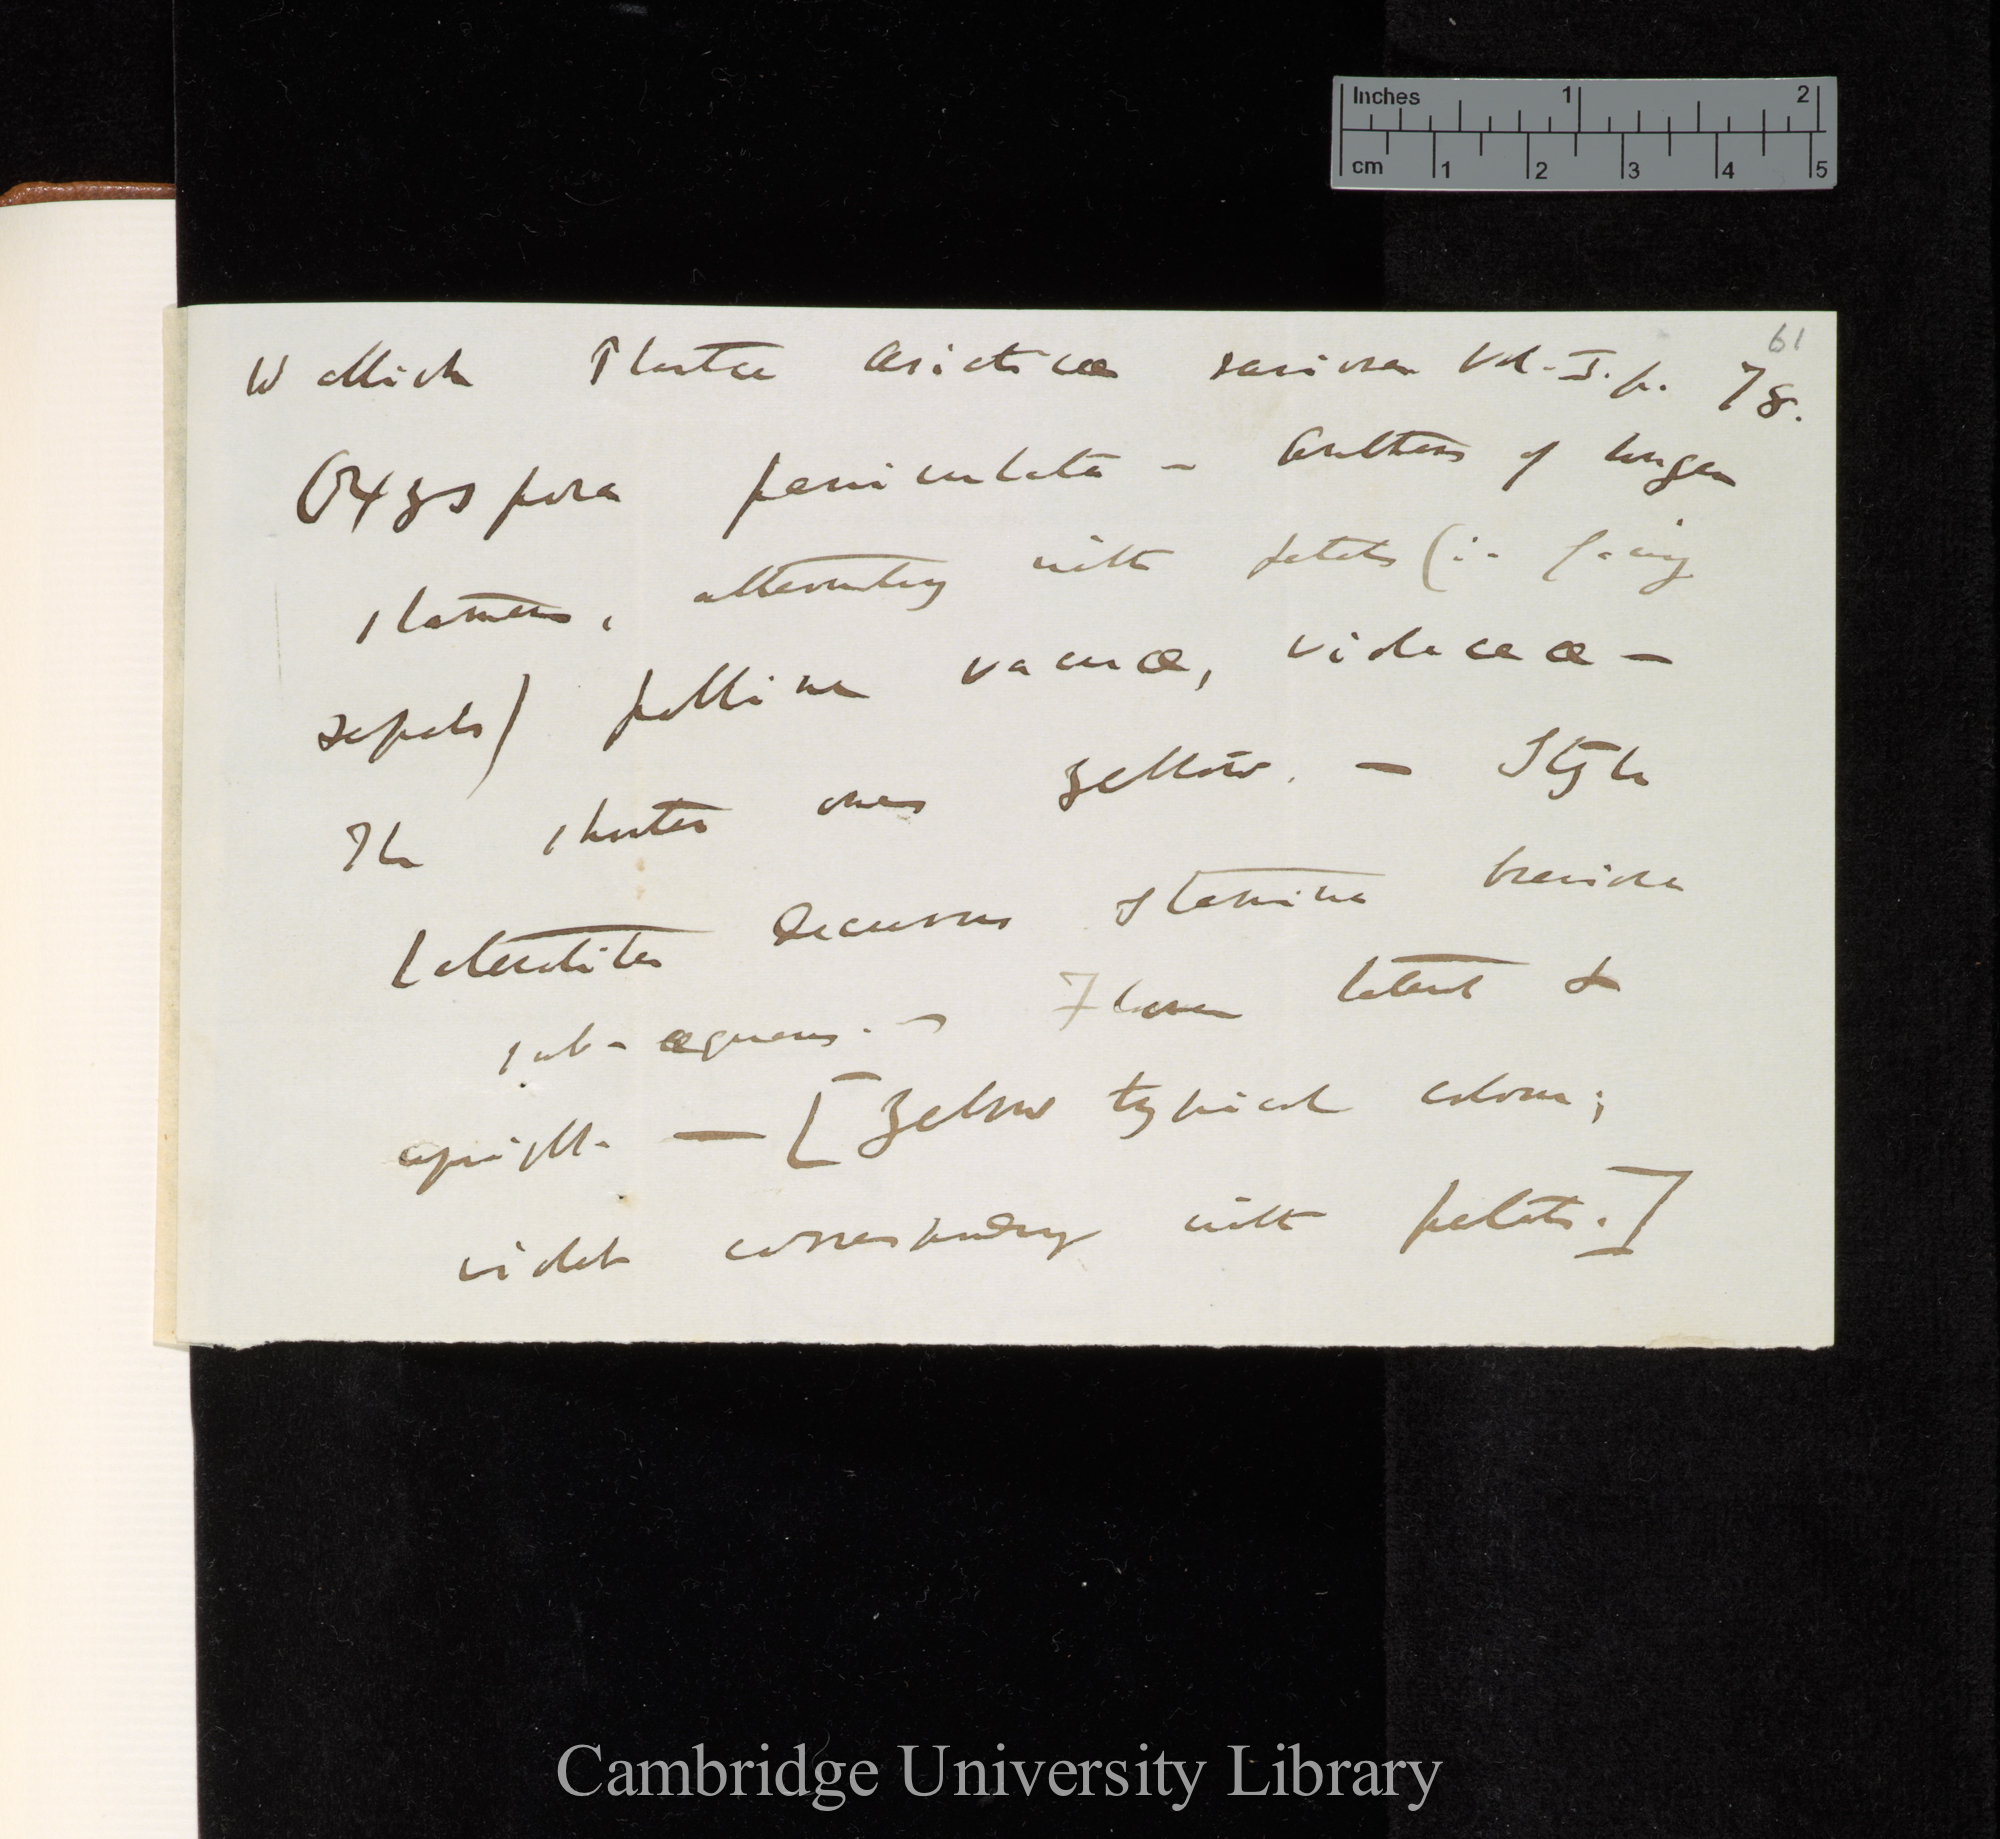 Inches 1 2
cm 1 2 3 4 5
61
Wallich Plantæ Asiaticæ rariores Vol. I. p. 78.
Oxyspora paniculata — Anthers of longer
stamens, alternating with petals (ie facing
sepals) polline vacuæ, violaceæ —
The shorter ones yellow. — Style
lateraliter decurvus stamina breviora
sub-æquans. — Flower lateral &
upright. — [Yellow typical colour;
violet corresponding with petals.]
Cambridge University Library